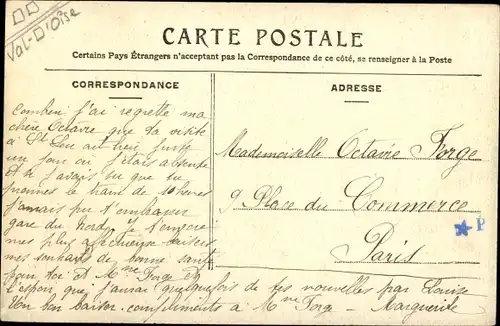 Val-D'Oise
CARTE POSTALE
Certains Pays Étrangers n'acceptant pas la Correspondance de ce côté, se renseigner à la Poste
CORRESPONDANCE
Combien j'ai regretté ma
chère Octavie que ta visite
à St Leu ait été juste
un jour où j'étais absente
et si j'avais su que tu
prennes le train de 10 heures
j'aurais pu t'embrasser
gare du Nord, je t'envoie
mes plus affectueux baisers
mes souhaits de bonne santé
pour toi et Mme Forge et
l'espoir que j'aurai quelquefois de tes nouvelles par Louise
Un bon baiser. compliments à Mme Forge - Marguerite
ADRESSE
Mademoiselle Octavie Forge
9 Place du Commerce
Paris
P